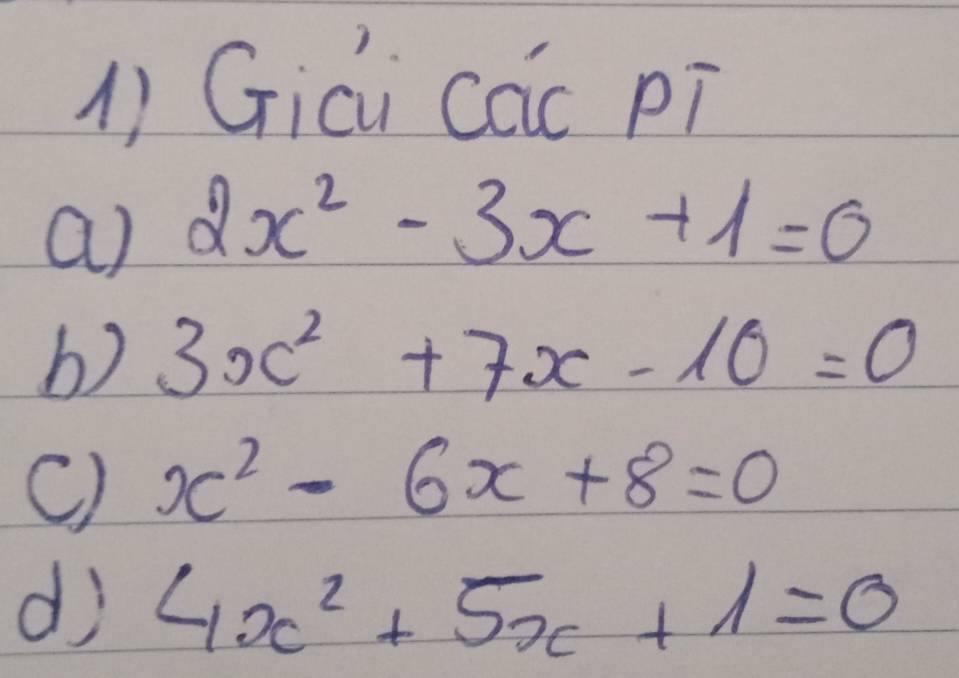 1) Giải các PT
a) 2x² - 3x + 1 = 0
b) 3x² + 7x - 10 = 0
c) x² - 6x + 8 = 0
d) 4x² + 5x + 1 = 0